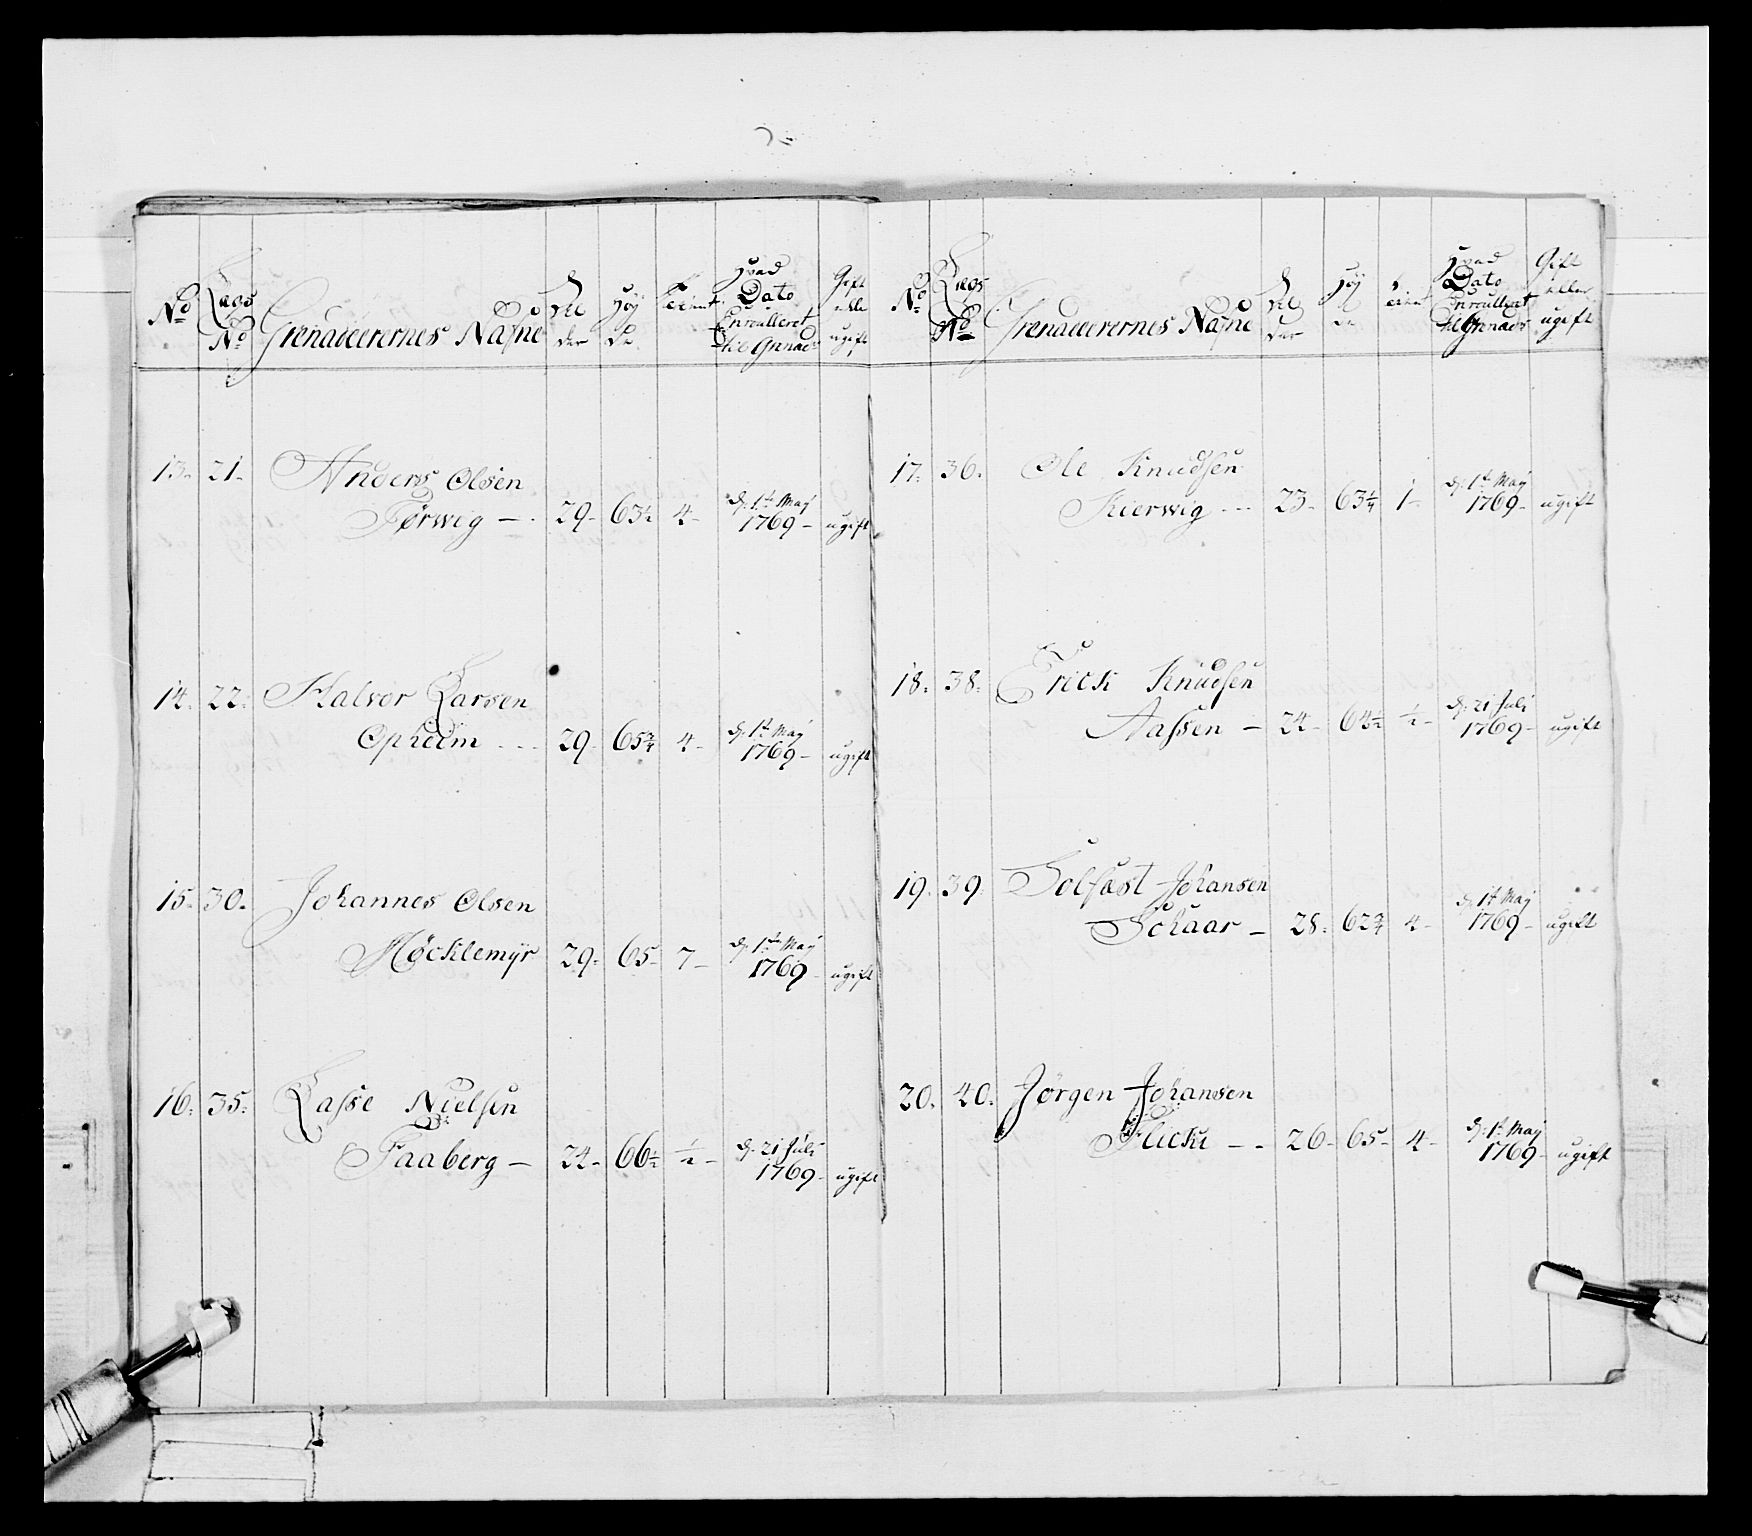 No
Lægs No
Grenadeerernes Nafne
Al der
Høy de
Hvad Dato Enroulleret til Grenad
Gift eller ugift
13. 21. Anders Olsen
Førwig — 29 - 63½ 4 - d. 1te May 1769 - ugift
14. 22. Halvor Larsen
Opheim - - - 29 65¾ 4 - d. 1te May 1769 - ugift
15. 30. Johannes Olsen
Møcklemyr 29 - 65 - 7 - d. 1te May 1769 - ugift
16. 35. Lasse Nielsen
Faaberg — 24 - 66½ ½ - d. 21 Juli 1769 - ugift
No
Lægs No
Grenadeerernes Nafne
Al der
Høy de
Hvad Dato Enroulleret til Grenad
Gift eller ugift
17. 36. Ole Knudsen
Kierwig - - - 23 - 63¼ 1 - d. 1te May 1769 - ugift
18. 38. Erick Knudsen
Aassen — 24 - 64½ ½ - d. 21 Juli 1769 - ugift
19. 39. Solfæst Johansen
Schaar — 28. 62¾ 4 - d. 1te May 1769 - ugift
20. 40. Jørgen Johansen
Flicke - - 26 - 65 - 4 - d. 1te May 1769 - ugift